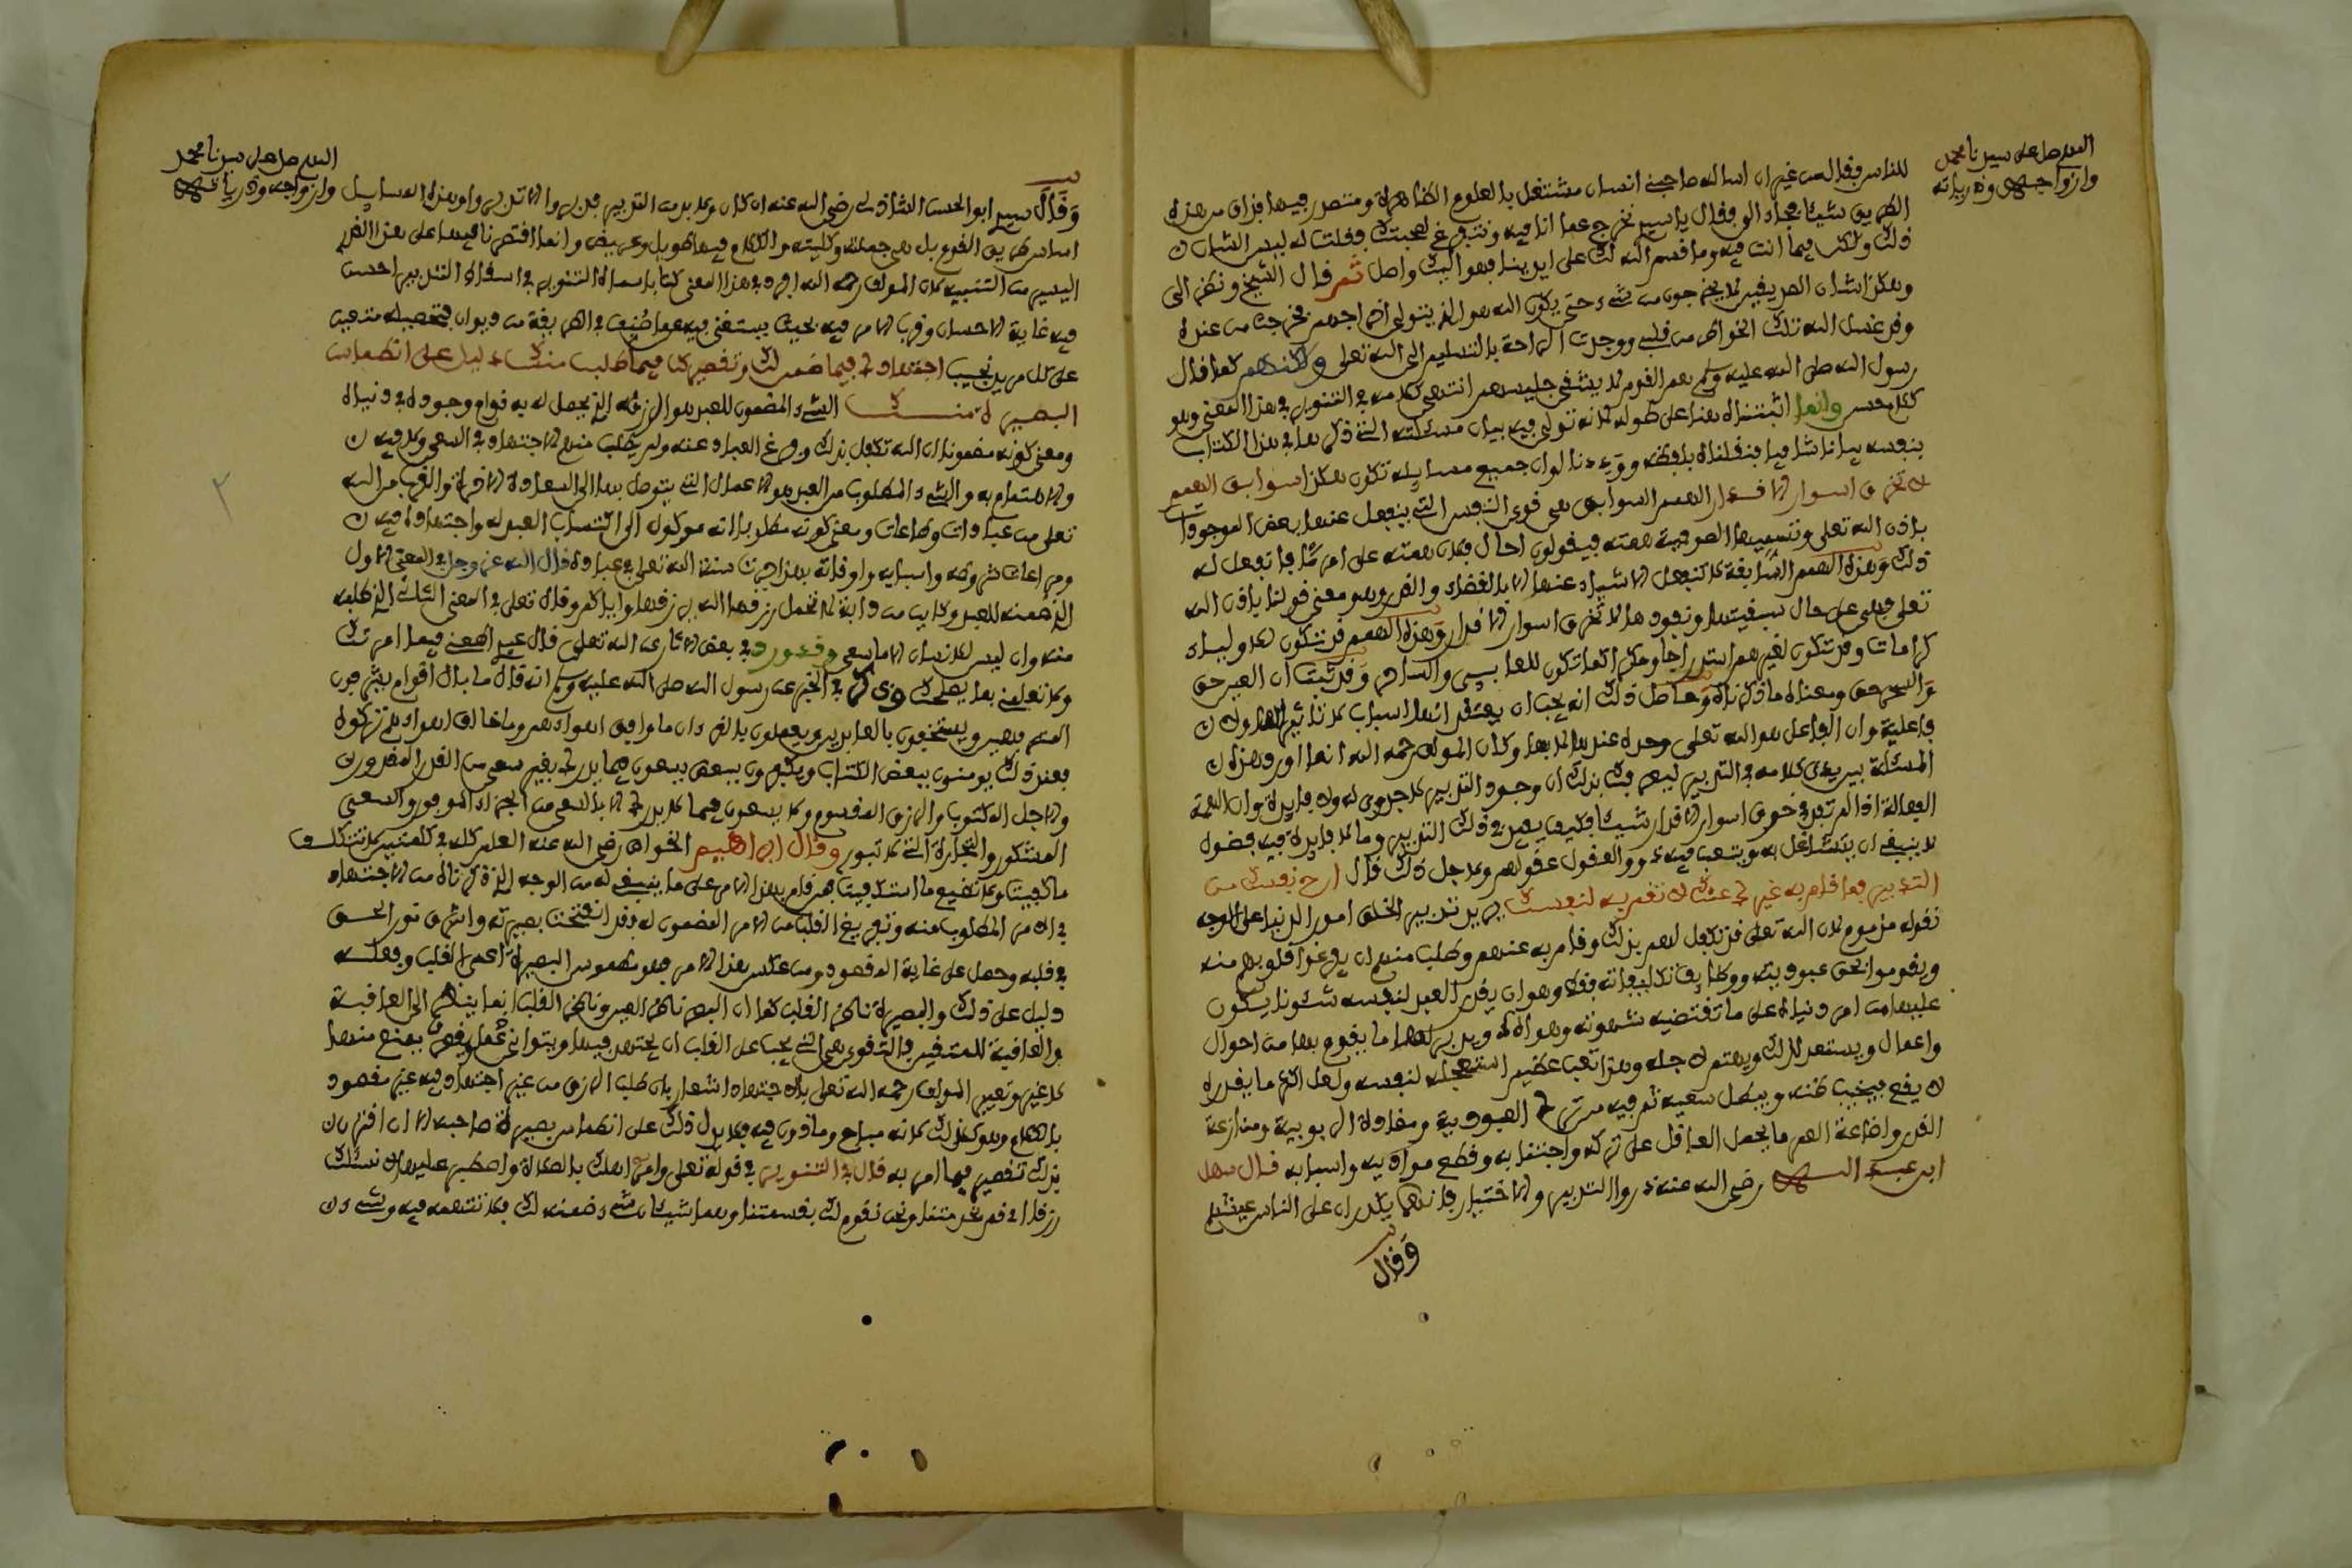 اللهم صل على سيدنا محمد
وازواجه وذريته
للناس فقال من غير ان اساله صاحبني انسان مشتغل بالعلوم الظاهرة ومتصدر فيها فذاق من هذه
الطريق شيئا فجاء الي فقال يا سيدي نخرج عما انا فيه ونتفرغ لصحبتك فقلت له ليس الشان
ذلك ولكن فيما انت فيه وما قسم الله لك على ايدينا فهو اليك واصل ثم قال الشيخ ونظر الي
وهكذا شان الصديقين لا يخرجون من شيء حتى يكون الله هو الذي يتولى اخراجهم فخرجت من عنده
وقد غسل الله تلك الخواطر من قلبي ووجدت الراحة بالتسليم الى الله تعلى ولكنهم كما قال
رسول الله صلى الله عليه وسلم هم القوم لا يشقى جليسهم انتهى كلامه في التنوير في هذا المعنى وهو
كلام حسن وانما اثبتناه هنا على طوله لانه تولى فيه بيان مسئلته التي ذكرها في هذا الكتاب
بنفسه بيانا شافيا فنقلناه بلفظه ووددنا لو ان جميع مسايله تكون هكذا سوابق الهمم
لا تخرق اسوار الاقدار الهمم السوابق هي قوى النفس التي ينفعل عنها بعض الموجودات
باذن الله تعلى وتسميها الصوفية همته فيقولون احال فلان همته على امر ما فانفعل له
ذلك وهذه الهمم السابقة لا تنفعل الاشياء عنها الا بالقضاء والقدر وهو معنى قولنا باذن الله
تعلى فهي على حال سبقيتها ونفوذها لا تخرق اسوار الاقدار وهذه الهمم قد تكون للاولياء
كرامات وقد تكون لغيرهم استدراجا ومكرا كما تكون للعاين والساحر وقد ثبت ان العين حق
والسحر حق ومعناه ما ذكرناه وحاصل ذلك انه يجب ان يعتقد انها اسباب لا تاثير لها ولا
فاعلية وان الفاعل هو الله تعلى وحده عندها لا بها وكان المولف رحمه الله انما اورد هذه
المسئلة بين يدي كلامه في التدبير ليعرفك بذلك ان وجود التدبير لا جدوى له ولا فايدة وان الهمة
الفعالة اذا لم تفد في خرق اسوار الاقدار شيئا فكيف يفيد في ذلك التدبير وما لا فايدة فيه فضول
لا ينبغي ان يتشاغل به ويتعب فيه ذوو العقول عقولهم ولاجل ذلك قال ارح نفسك من
التدبير فما قام به غيرك عنك لا تقم به لنفسك يريد تدبير الخلق امور الدنيا على الوجه
نقوله مذموم لان الله تعلى قد تكفل لهم بذلك وقام به عنهم وطلب منهم ان يفرغوا قلوبهم منه
ويقوموا بحق عبوديته ووظايف تكليفاته فقط وهو ان يقدر العبد لنفسه شئونا يكون
عليها من امر دنياه على ما تقتضيه شهوته وهواه ويدبر لها ما يقوم بها من احوال
واعمال ويستعد لذلك ويهتم لاجله وهذا تعب عظيم استعجله لنفسه ولعل اكثر ما يقدره
لا يقع فيخيب ظنه ويبطل سعيه ثم فيه من ترك العبودية ومقاواة الربوبية ومنازعة
القدر واضاعة العمر ما يحمل العاقل على تركه واجتنابه وقطع مواده واسبابه قال سهل
ابن عبد الله رضي الله عنه ذروا التدبير والاختيار فانهما يكدران على الناس عيشهم
وقال
اللهم صل على سيدنا محمد
وازواجه وذرياته
وقال سيدي ابو الحسن الشاذلي رضي الله عنه ان كان ولا بد من التدبير فدبروا الا تدبروا وهذه المسايل
اساس طريق القوم بل هي جملته وكليته والكلام فيها طويل وعريض وانما اقتصرنا فيها على هذا القدر
اليسير من التنبيه لان المولف رحمه الله افرد في هذا المعنى كتابا سماه التنوير في اسقاط التدبير احسن
فيه غاية الاحسان وقرب الامر فيه بحيث يستغنى فيه عما صنف في الطريقة من ديوان فتحصيله متعين
على كل مريد نجيب اجتهادك فيما ضمن لك وتقصيرك فيما طلب منك دليل على انطماس
البصيرة منك الشيء المضمون للعبد هو الرزق الذي يحصل له به قوام وجوده في دنياه
ومعنى كونه مضمونا ان الله تكفل بذلك وفرغ العباد عنه ولم يطلب منهم الاجتهاد في السعي ولا فيه
والاهتمام به والشيء المطلوب من العبد هو الاعمال التي يتوصل بها الى السعادة الاخرى والقرب من الله
تعلى من عبادات وطاعات ومعنى كونه مطلوبا انه موكول الى اكتساب العبد له واجتهاده فيه
ومراعات شروطه واسبابه واوقاته بهذا جرت سنة الله تعلى في عباده قال الله عز وجل في المعنى الاول
الذي ضمنه للعبد وكاين من دابة لا تحمل رزقها الله يرزقها واياكم وقال تعلى في المعنى الثاني الذي طلبه
منه وان ليس للانسان الا ما سعى وقد ورد في بعض الاثار عن الله تعلى قال عبدي اطعني فيما امرتك
ولا تعلمني بما يصلحك وذكر في الخبر عن رسول الله صلى الله عليه وسلم انه قال ما بال اقوام يشرفون
المترفين ويستخفون بالعابدين ويعملون بالقرءان ما وافق اهواءهم وما خالف اهواءهم تركوه
فعند ذلك يومنون ببعض الكتاب ويكفرون ببعض يسعون فيما يدرك بغير سعي من القدر المقدور
والاجل المكتوب والرزق المقسوم ولا يسعون فيما لا يدرك الا بالسعي من الجزاء الموفور والسعي
المشكور والتجارة التي لا تبور وقال ابراهيم الخواص رضي الله عنه العلم كله في كلمتين لا تتكلف
ما كفيت ولا تضيع ما استكفيت فمن قام بهذا الامر على ما ينبغي له من الوجه الذي ذكرناه من الاجتهاد
في الامر المطلوب منه وتفريغ القلب من الامر المضمون له فقد انفتحت بصيرته واشرق نور الحق
في قلبه وحصل على غاية المقصود ومن عكس هذا الامر فهو مطموس البصيرة اعمى القلب وفعله
دليل على ذلك والبصيرة ناظر القلب كما ان البصر ناظر العين وناظر القلب انما ينظر الى العاقبة
والعاقبة للمتقين فالتقوى هي التي يجب على القلب ان يجتهد فيها
لا غير وتعبير المولف رحمه الله تعلى بالاجتهاد اشعار بان طلب الرزق من غير اجتهاد فيه غير مقصود
بالكلام وهو كذلك لانه مباح وماذون فيه فلا يدل ذلك على انطماس بصيرة صاحبه الا ان اقترن
بذلك تقصير فيما امر به قال في التنوير في قوله تعلى وامر اهلك بالصلاة واصطبر عليها لا نسئلك
رزقا اي قم بخدمتنا ونحن نقوم لك بقسمتنا وهما شيئان شيء ضمنه لك فلا تتهمه فيه وشيء